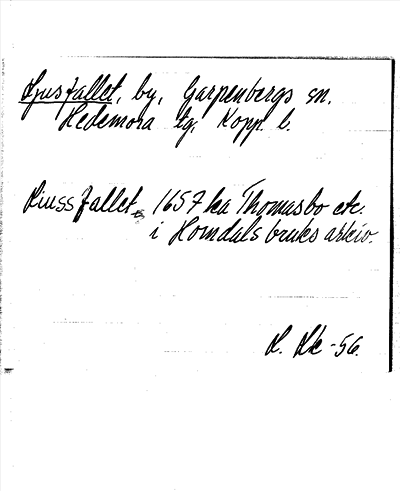 Ljusfallet, by, Garpenbergs sn.
Hedemora tg, Kopp. l.
Liussfallet 1657 ka Thomasbo etc.
i Horndals bruks arkiv.